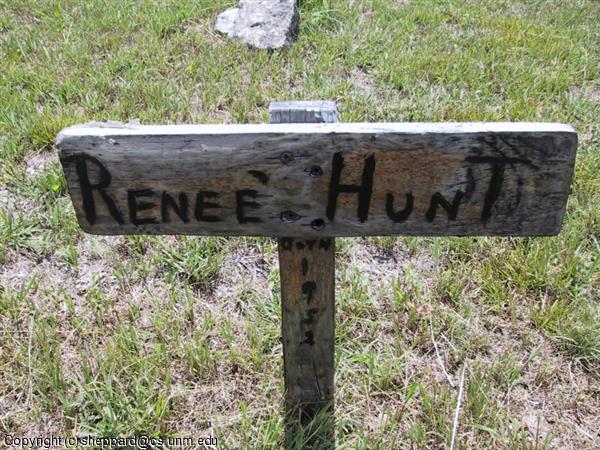 RENEÉ HUNT
BORN
Copyright (c) sheppard@cs.unm.edu